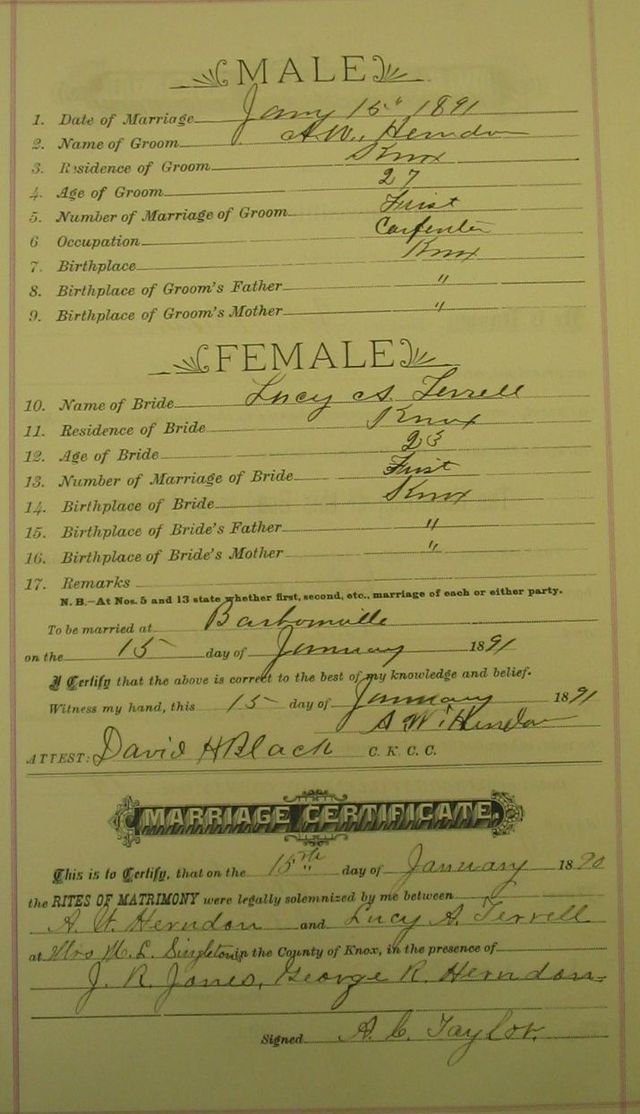 MALE
1. Date of Marriage Jany 15" 1891
2. Name of Groom A. W. Herndon
3. Residence of Groom Knox
4. Age of Groom 27
5. Number of Marriage of Groom First
6 Occupation Carpenter
7. Birthplace Knox
8. Birthplace of Groom's Father "
9. Birthplace of Groom's Mother "
FEMALE
10. Name of Bride Lucy A. Terrell
11. Residence of Bride Knox
12. Age of Bride 23
13. Number of Marriage of Bride First
14. Birthplace of Bride Knox
15. Birthplace of Bride's Father "
16. Birthplace of Bride's Mother "
17. Remarks
N. B.—At Nos. 5 and 13 state whether first, second, etc., marriage of each or either party.
To be married at Barbourville
on the 15 day of January 1891
I Certify that the above is correct to the best of my knowledge and belief.
Witness my hand, this 15 day of January 1891
A W. Herndon
ATTEST: David H Black C. K. C. C.
MARRIAGE CERTIFICATE.
This is to Certify, that on the 15th day of January 1890
the RITES OF MATRIMONY were legally solemnized by me between
A. W. Herndon and Lucy A. Terrell
at Mrs M. L. Singleton in the County of Knox, in the presence of
J. R. Jones, George R. Herndon
Signed A. C. Taylor.